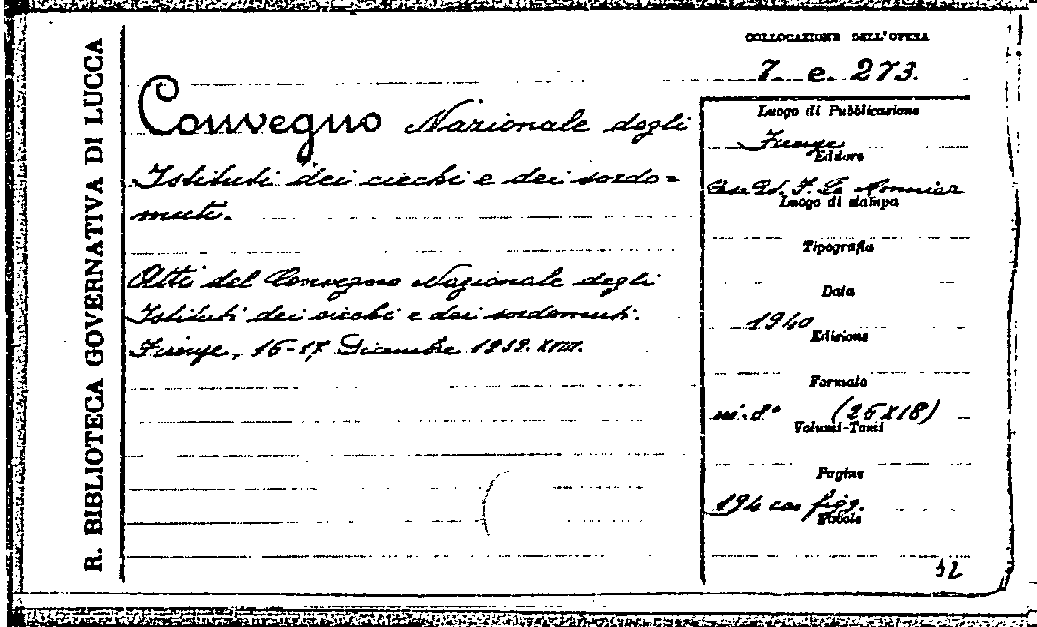 R. BIBLIOTECA GOVERNATIVA DI LUCCA
COLLOCAZIONE DELL'OPERA
7. e. 273.
Convegno Nazionale degli
Istituti dei ciechi e dei sordo=
muti.
Atti del Convegno Nazionale degli
Istituti dei ciechi e dei sordomuti.
Firenze, 16-17 Dicembre 1939. XVIII.
Luogo di Pubblicazione
Firenze
Editore
Ed. F. Le Monnier
Luogo di stampa
Tipografia
Data
1940
Edizione
Formato
in-8° (25x18)
Volumi-Tomi
Pagine
194 con figg.
Tavole
12